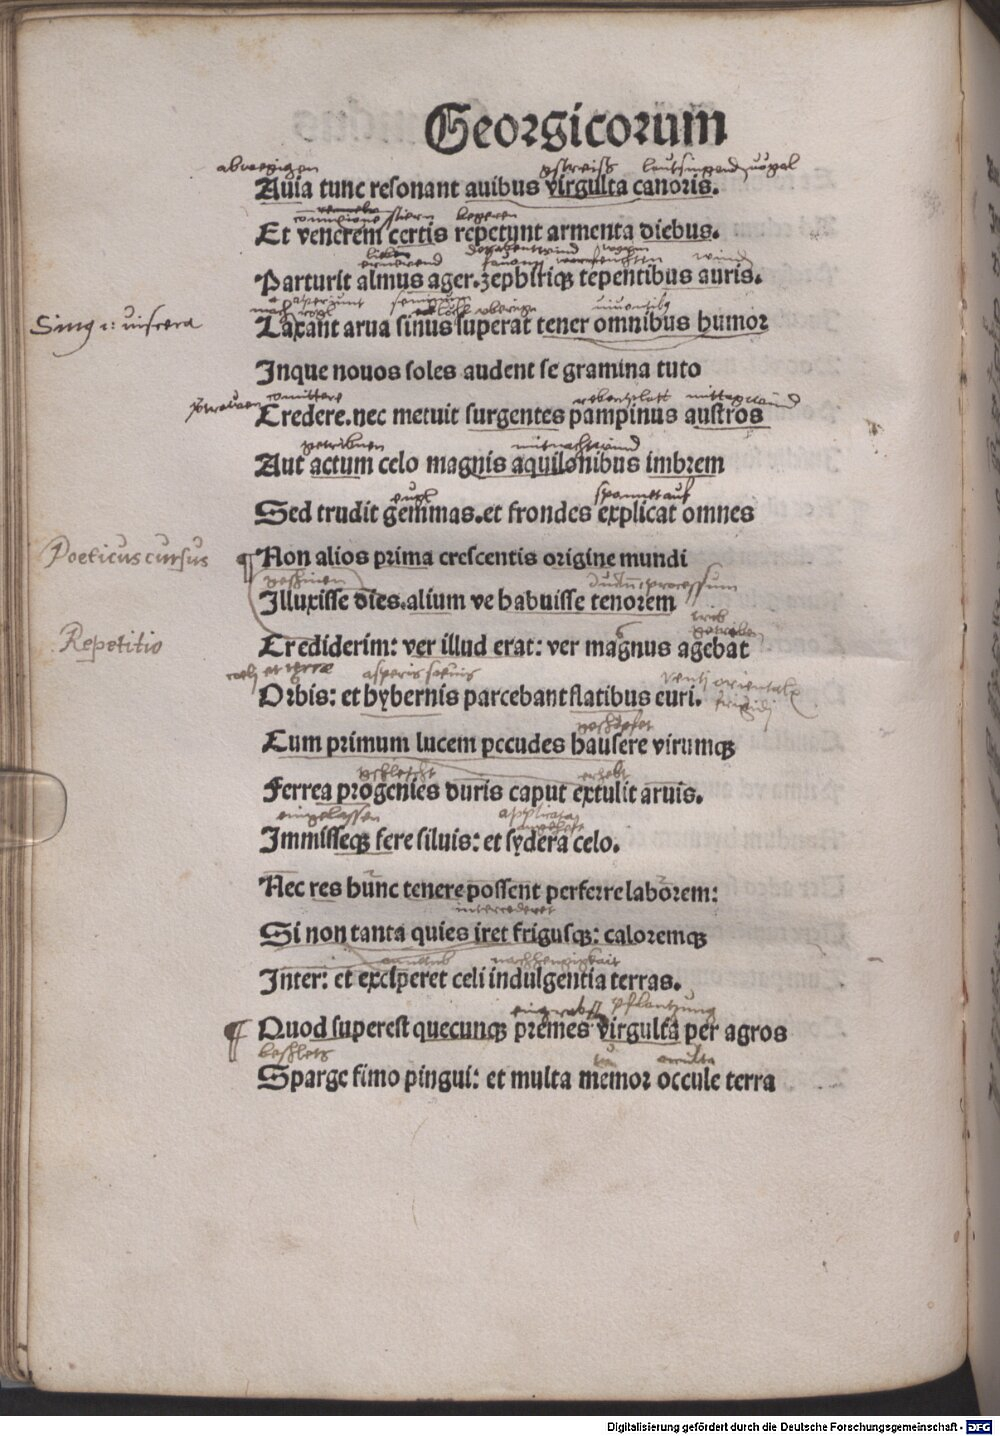 Georgicorum
abwegigen gstreiss lautsingend vögel
Auia tunc resonant auibus virgulta canoris.
stiern begeren
Et venerem certis repetunt armenta diebus.
wind
Parturit almus ager. zephiriqꝫ tepentibus auris.
Laxant arua sinus superat tener omnibus humor
Inque nouos soles audent se gramina tuto
comittere rebenplatt mittagwind
Credere. nec metuit surgentes pampinus austros
getribnen mitnachtwind
Aut actum celo magnis aquilonibus imbrem
eugl spannet auf
Sed trudit gemmas. et frondes explicat omnes
Poeticus cursus
¶ Non alios prima crescentis origine mundi
processum
Illuxisse dies. alium ve habuisse tenorem
Repetitio
Crediderim: ver illud erat: ver magnus agebat
et terre asperis venti orientalis frigidi
Orbis: et hybernis parcebant flatibus euri.
geschöpfet
Cum primum lucem pecudes hausere virumqꝫ
gschlecht erhebt
Ferrea progenies duris caput extulit aruis.
eingelassen
Immisseqꝫ fere siluis: et sydera celo.
Nec res hunc tenere possent perferre laborem:
intercederet
Si non tanta quies iret frigusqꝫ: caloremqꝫ
Inter: et exciperet celi indulgentia terras.
eingrabst pflantzung
¶ Quod superest quecunqꝫ premes virgulta per agros
occulta
Sparge fimo pingui: et multa memor occule terra
Digitalisierung gefördert durch die Deutsche Forschungsgemeinschaft - DFG